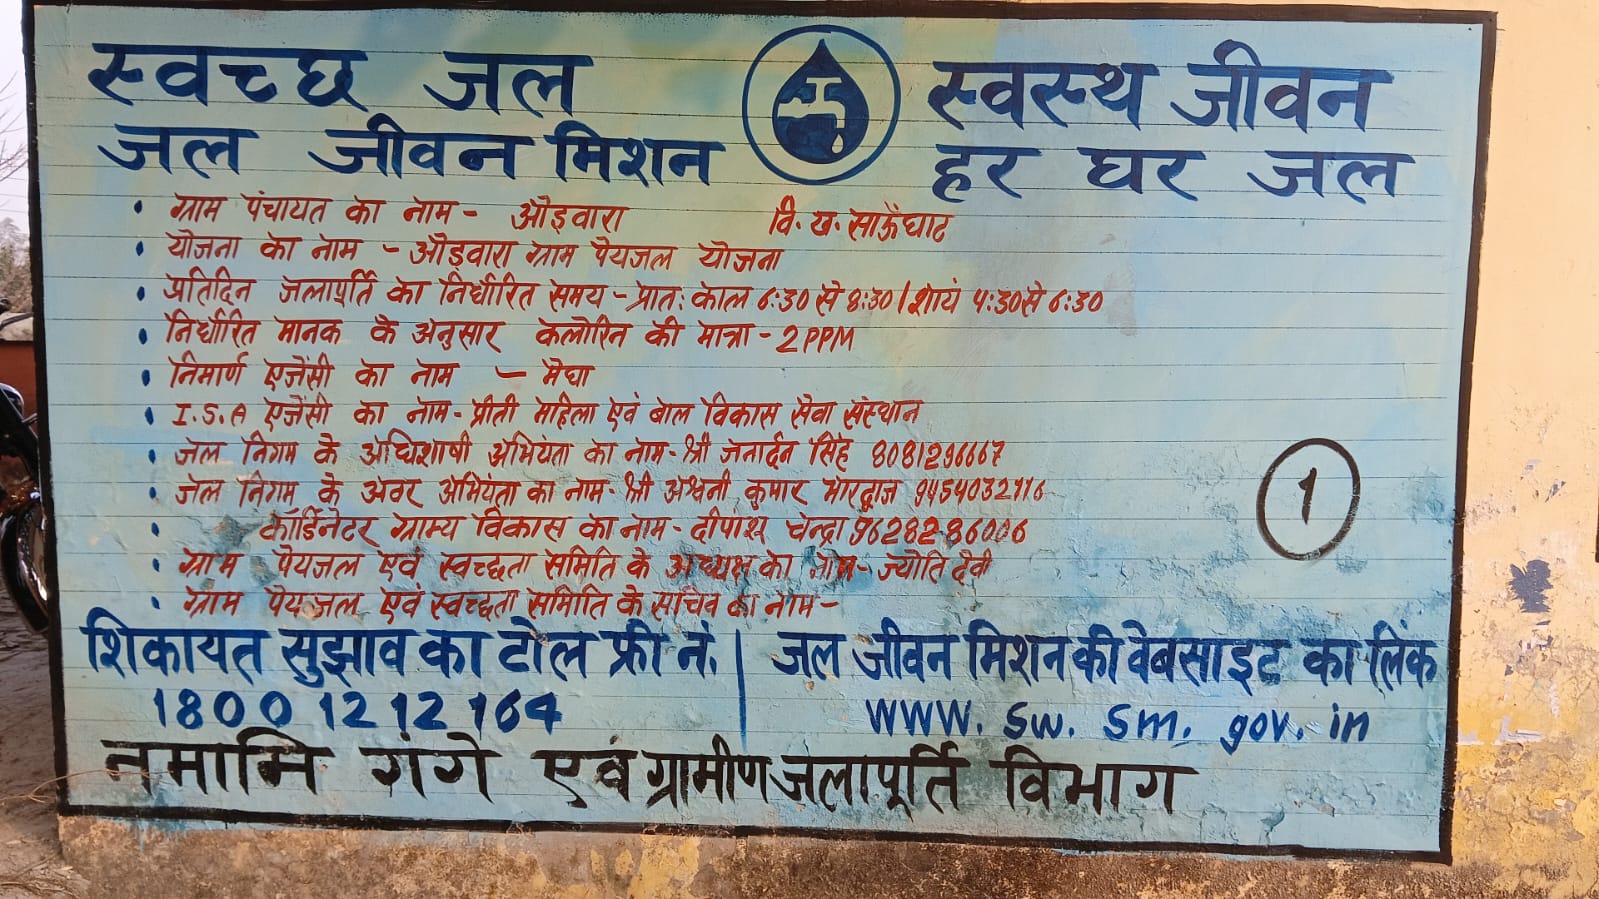 स्वच्छ जल स्वस्थ जीवन
जल जीवन मिशन हर घर जल
• ग्राम पंचायत का नाम - ओड़वारा वि. ख. साऊँघाट
• योजना का नाम - ओड़वारा ग्राम पेयजल योजना
• प्रतिदिन जलापूर्ति का निर्धारित समय - प्रातः काल 6:30 से 8:30 / शायं 4:30 से 6:30
• निर्धारित मानक के अनुसार क्लोरिन की मात्रा - 2 PPM
• निमार्ण एजेंसी का नाम - मेघा
• I.S.A एजेंसी का नाम - प्रीती महिला एवं बाल विकास सेवा संस्थान
• जल निगम के अधिशाषी अभियंता का नाम - श्री जनार्दन सिंह 8081296667
• जल निगम के अवर अभियंता का नाम - श्री अश्वनी कुमार भारद्वाज
• कॉर्डिनेटर ग्राम्य विकास का नाम - चन्द्रा 9628286006
• ग्राम पेयजल एवं स्वच्छता समिति के अध्यक्ष का नाम - ज्योति देवी
• ग्राम पेयजल एवं स्वच्छता समिति के सचिव का नाम -
1
शिकायत सुझाव का टोल फ्री नं. | जल जीवन मिशन की वेबसाइट का लिंक
1800 12 12 164 www. sw. sm. gov. in
नमामि गंगे एवं ग्रामीण जलापूर्ति विभाग